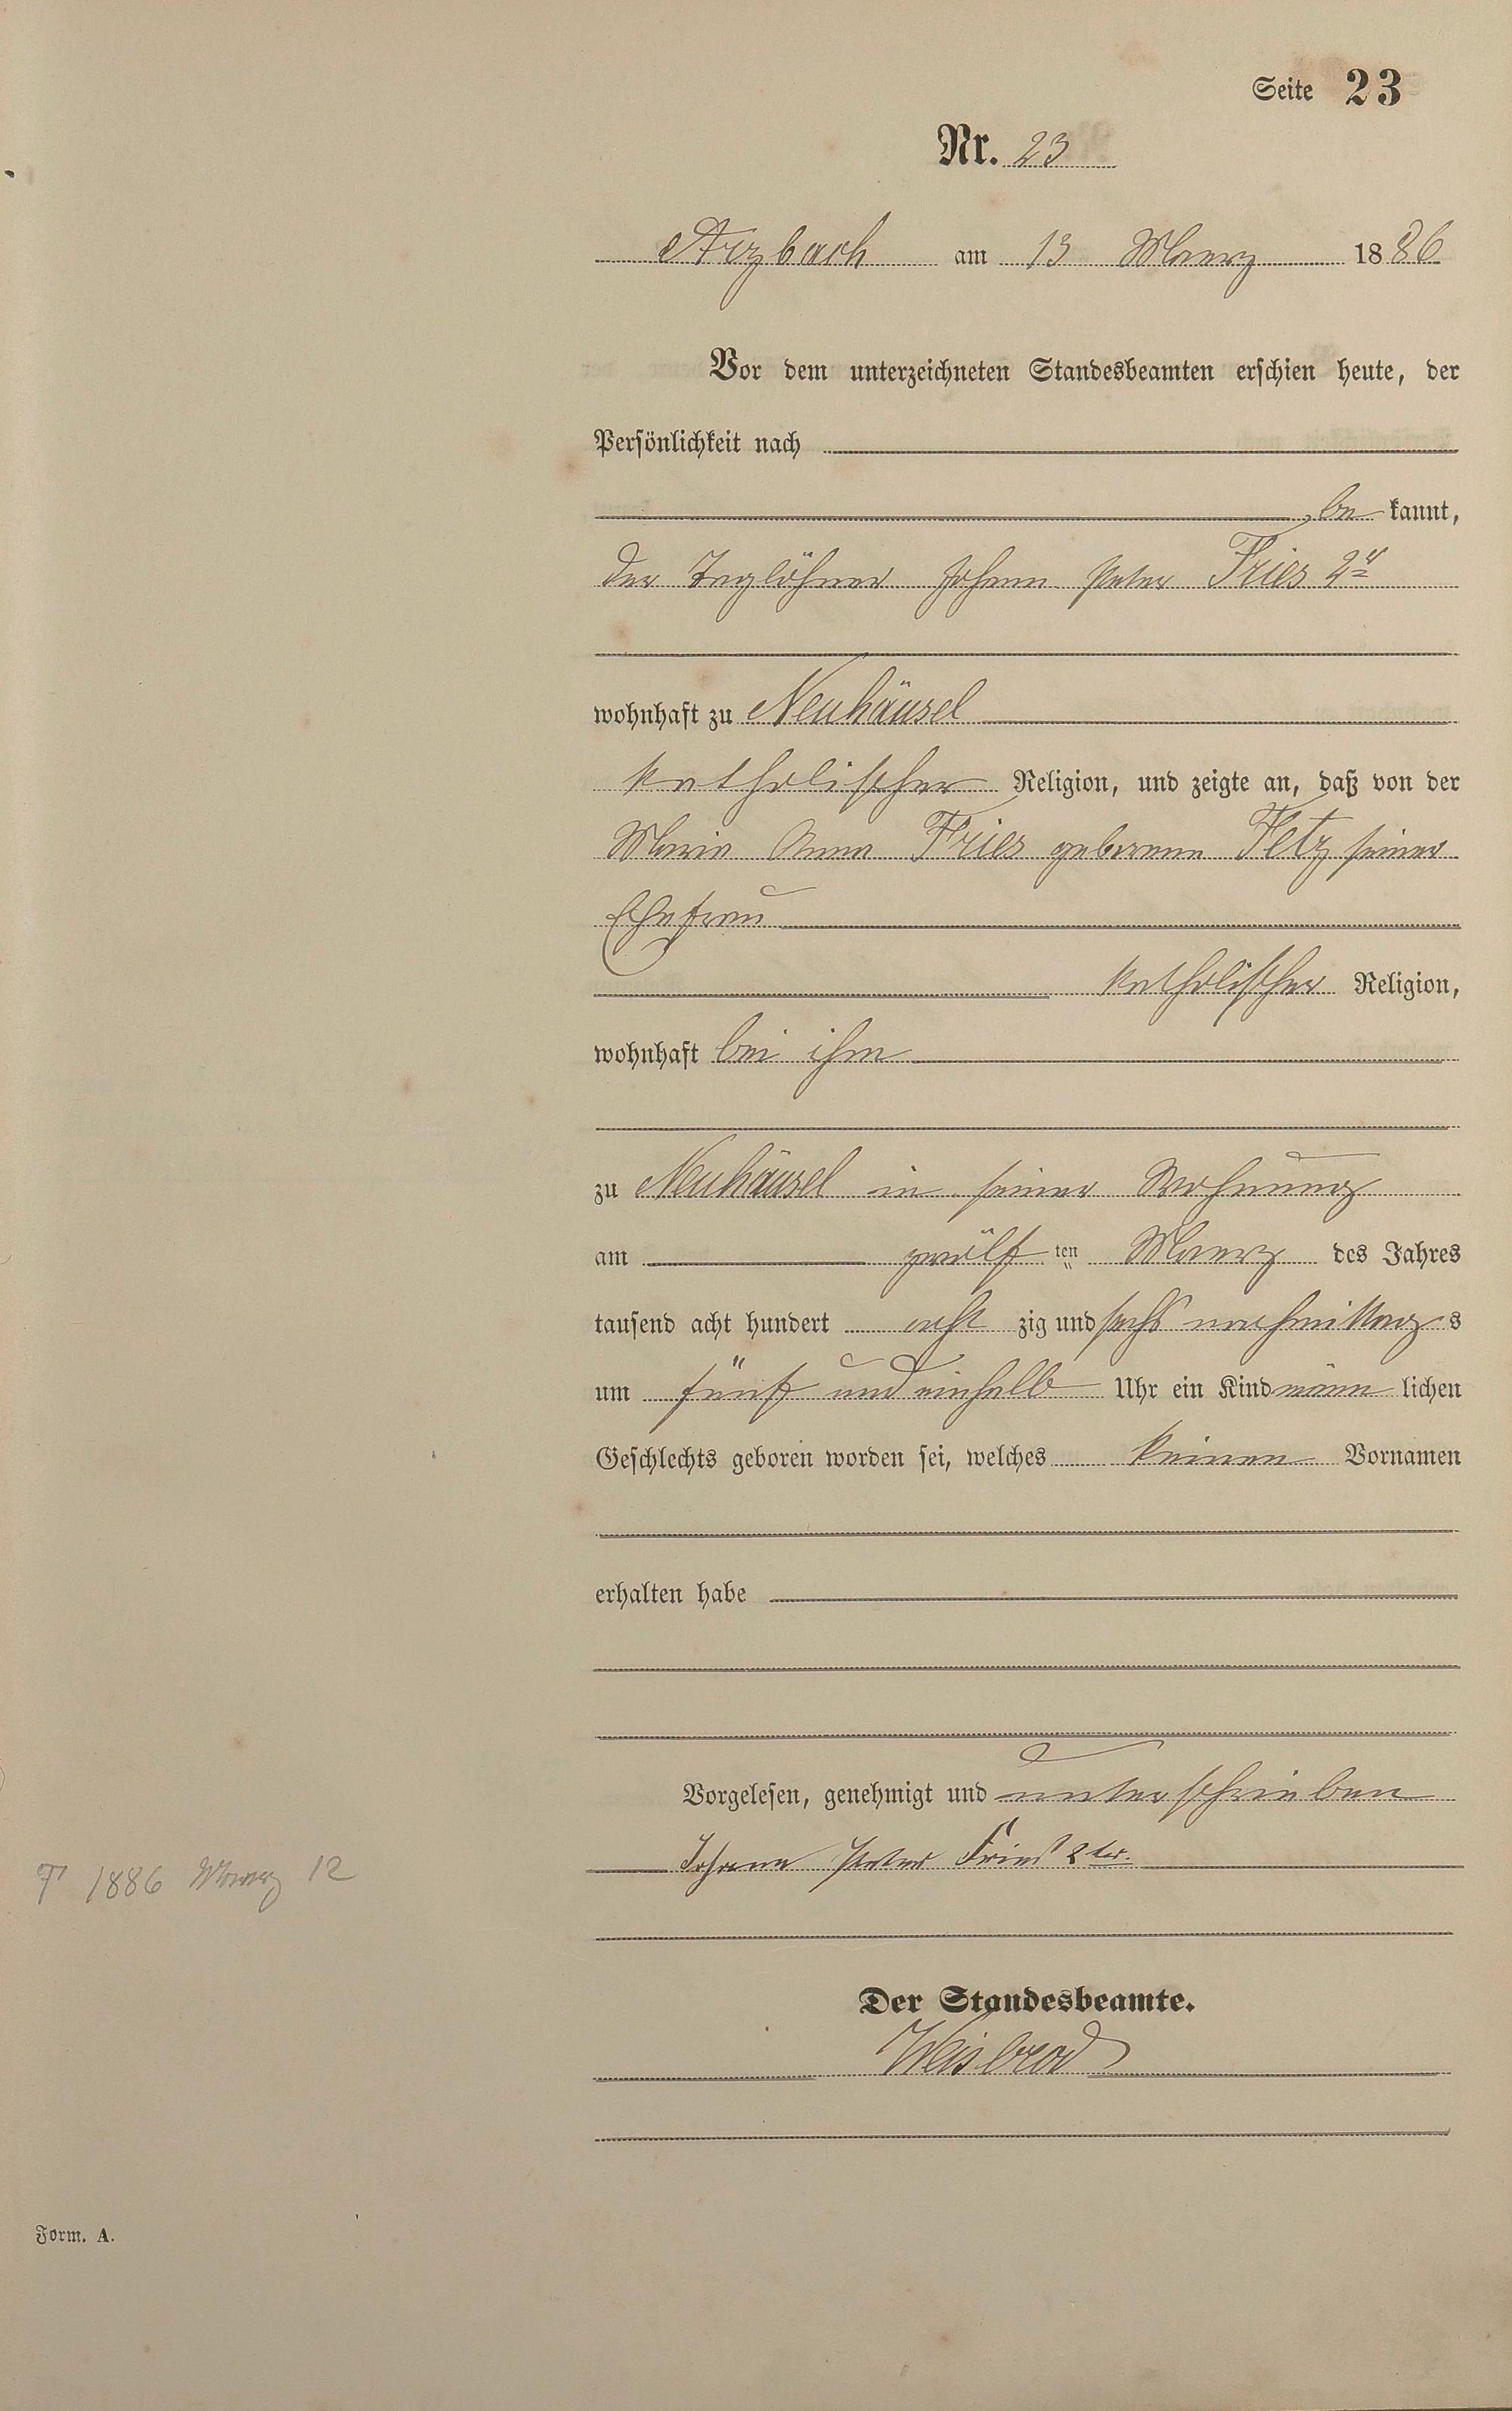 Seite 23
Nr. 23
Arzbach am 13 Maerz 1886
Vor dem unterzeichneten Standesbeamten erschien heute, der
Persönlichkeit nach
be kannt,
der Taglöhner Johann Peter Fries 2r
wohnhaft zu Neuhäusel
katholischer Religion, und zeigte an, daß von der
Maria Anna Fries geborenen Fetz seiner
Ehefrau
katholischer Religion,
wohnhaft bei ihm
zu Neuhäusel in seiner Wohnung
am zwölf ten Maerz des Jahres
tausend acht hundert acht zig und sechs nachmittags
um fünf und einhalb Uhr ein Kind männ lichen
Geschlechts geboren worden sei, welches keinen Vornamen
erhalten habe
Vorgelesen, genehmigt und unterschrieben
Johann Peter Fries 2ter.
† 1886 Maerz 12
Der Standesbeamte.
Weisbrod
Form. A.